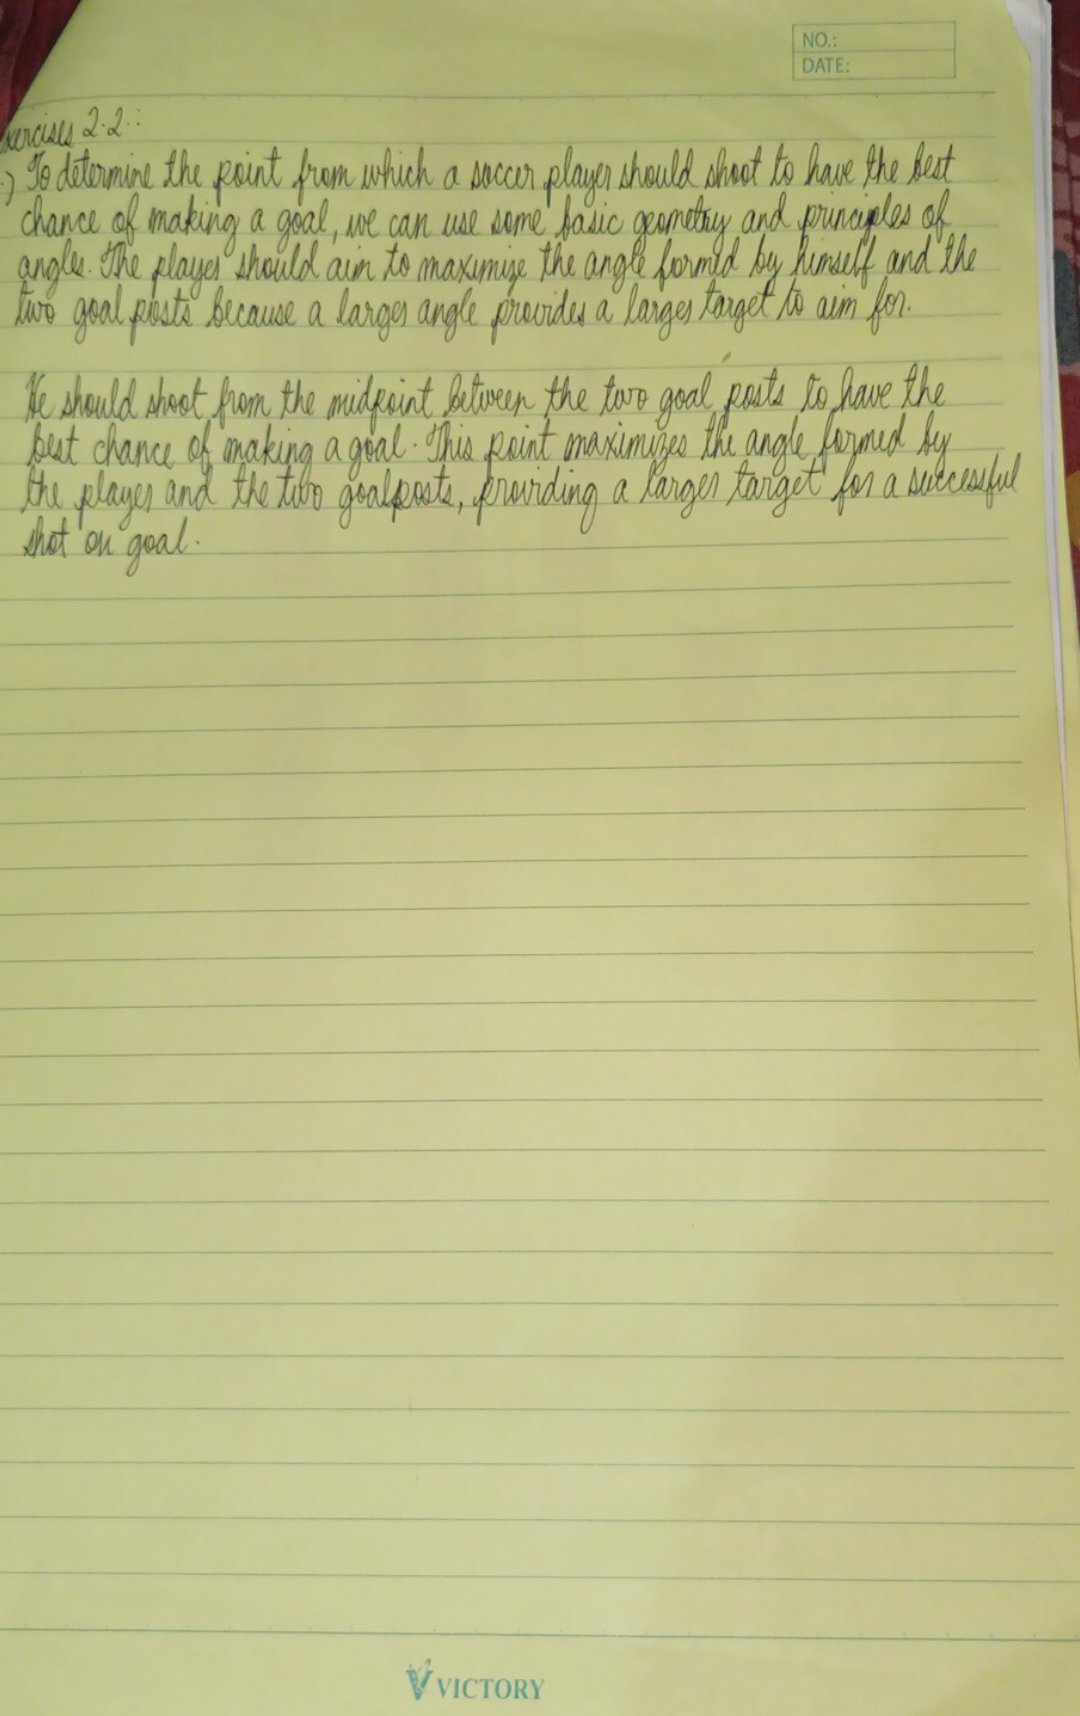 NO.:
DATE:
xercises 2.2.:
.) To determine the point from which a soccer player should shoot to have the best
chance of making a goal, we can use some basic geometry and principles of
angles. The player should aim to maximize the angle formed by himself and the
two goal posts because a larger angle provides a larger target to aim for.
He should shoot from the midpoint between the two goal posts to have the
best chance of making a goal. This point maximizes the angle formed by
the player and the two goalposts, providing a larger target for a successful
shot on goal.
VICTORY